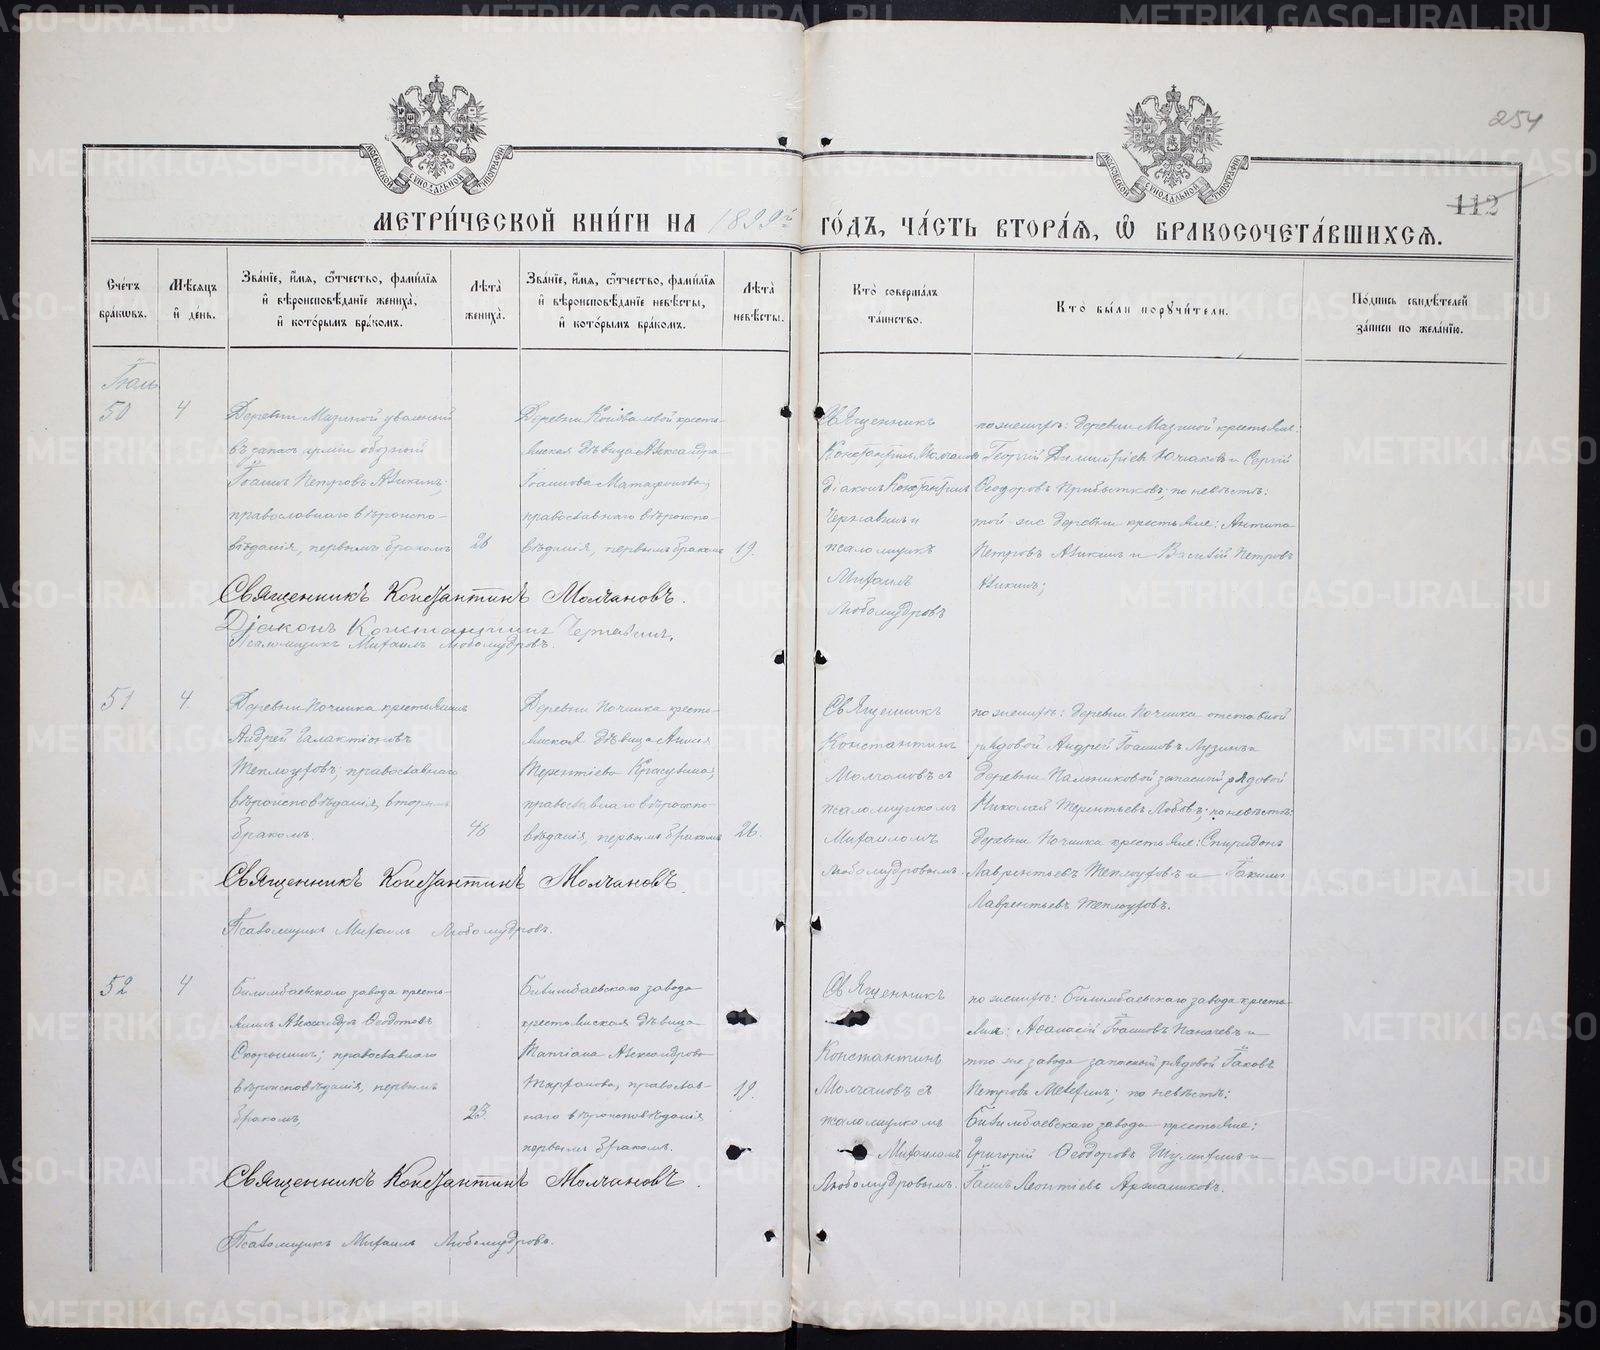 254
112
МОСКОВСКОЙ СѴНОДАЛЬНОЙ ТИПОГРАФІИ
МОСКОВСКОЙ СѴНОДАЛЬНОЙ ТИПОГРАФІИ
МЕТРИ́ЧЕСКОЙ КНИ́ГИ НА 1899й ГО́ДЪ, ЧА́СТЬ ВТОРА́Я, Ѽ БРАКОСОЧЕТА́ВШИХСЯ.
Сче́тъ бра́кѡвъ.
Мѣ́сяцъ и҆ де́нь.
Зва́нїе, и҆́мя, ѻ҆́тчество, фами́лїя и҆ вѣроисповѣ́данїе жениха̀, и҆ кото́рымъ бра́комъ.
Лѣ́та жениха̀.
Зва́нїе, и҆́мя, ѻ҆́тчество, фами́лїя и҆ вѣроисповѣ́данїе невѣ́сты, и҆ кото́рымъ бра́комъ.
Лѣ́та невѣ́сты.
Кто̀ соверша́лъ та́инство.
Кто̀ бы́ли порꙋчи́тели.
По́дпись свидѣ́телей за́писи по жела́нїю.
Іюль
50
4
Деревни Мазиной уволенный
въ запасъ арміи обозный
Іоаннъ Петровъ Аникинъ;
православнаго вѣроиспо-
вѣданія, первымъ бракомъ
26
Деревни Коноваловой кресть-
янская дѣвица Александра
Іоаннова Матафонова;
православнаго вѣроиспо-
вѣданія, первымъ бракомъ
19.
Священникъ
Константинъ Молчановъ
діаконъ Константинъ
Чернавинъ и
псаломщикъ
Михаилъ
Любомудровъ
по женихѣ: деревни Мазиной крестьяне:
Георгій Димитріевъ и Сергій
Ѳеодоровъ Прибытковъ; по невѣстѣ:
той-же деревни крестьяне: Антипа
Петровъ Аникинъ и Василій Петровъ
Аникинъ;
Священникъ Константинъ Молчановъ.
Діаконъ Константинъ Чернавинъ,
Псаломщикъ Михаилъ Любомудровъ.
51
4.
Деревни Починка крестьянинъ
Андрей Галактіоновъ
Теплоуховъ; православнаго
вѣроисповѣданія, вторымъ
бракомъ.
46
Деревни Починка кресть-
янская дѣвица Анисія
Терентіева Красулина;
православнаго вѣроиспо-
вѣданія, первымъ бракомъ
26.
Священникъ
Константинъ
Молчановъ съ
псаломщикомъ
Михаиломъ
Любомудровымъ.
по женихѣ: деревни Починка отставной
рядовой Андрей Іоанновъ Лузинъ и
деревни Пальниковой запасной рядовой
Николай Терентьевъ Лобовъ; по невѣстѣ:
деревни Починка крестьяне: Спиридонъ
Лаврентьевъ Теплоуховъ и Іакимъ
Лаврентьевъ Теплоуховъ.
Священникъ Константинъ Молчановъ.
Псаломщикъ Михаилъ Любомудровъ.
52
4
Билимбаевскаго завода кресть-
янинъ Александръ Ѳедотовъ
Скорынинъ; православнаго
вѣроисповѣданія, первымъ
бракомъ,
23.
Билимбаевскаго завода
крестьянская дѣвица
Маріана Александрова
православ-
наго вѣроисповѣданія
первымъ бракомъ.
19.
Священникъ
Константинъ
Молчановъ съ
псаломщикомъ
Михаиломъ
Любомудровымъ.
по женихѣ: Билимбаевскаго завода кресть-
янe: Аѳанасій Іоанновъ и
того же завода запасный рядовой Іаковъ
Петровъ Мелехинъ; по невѣстѣ:
Билимбаевскаго завода крестьяне:
Григорій Ѳеодоровъ и
Іоаннъ Леонтіевъ Аржанниковъ.
Священникъ Константинъ Молчановъ.
Псаломщикъ Михаилъ Любомудровъ.
METRIKI.GASO-URAL.RU